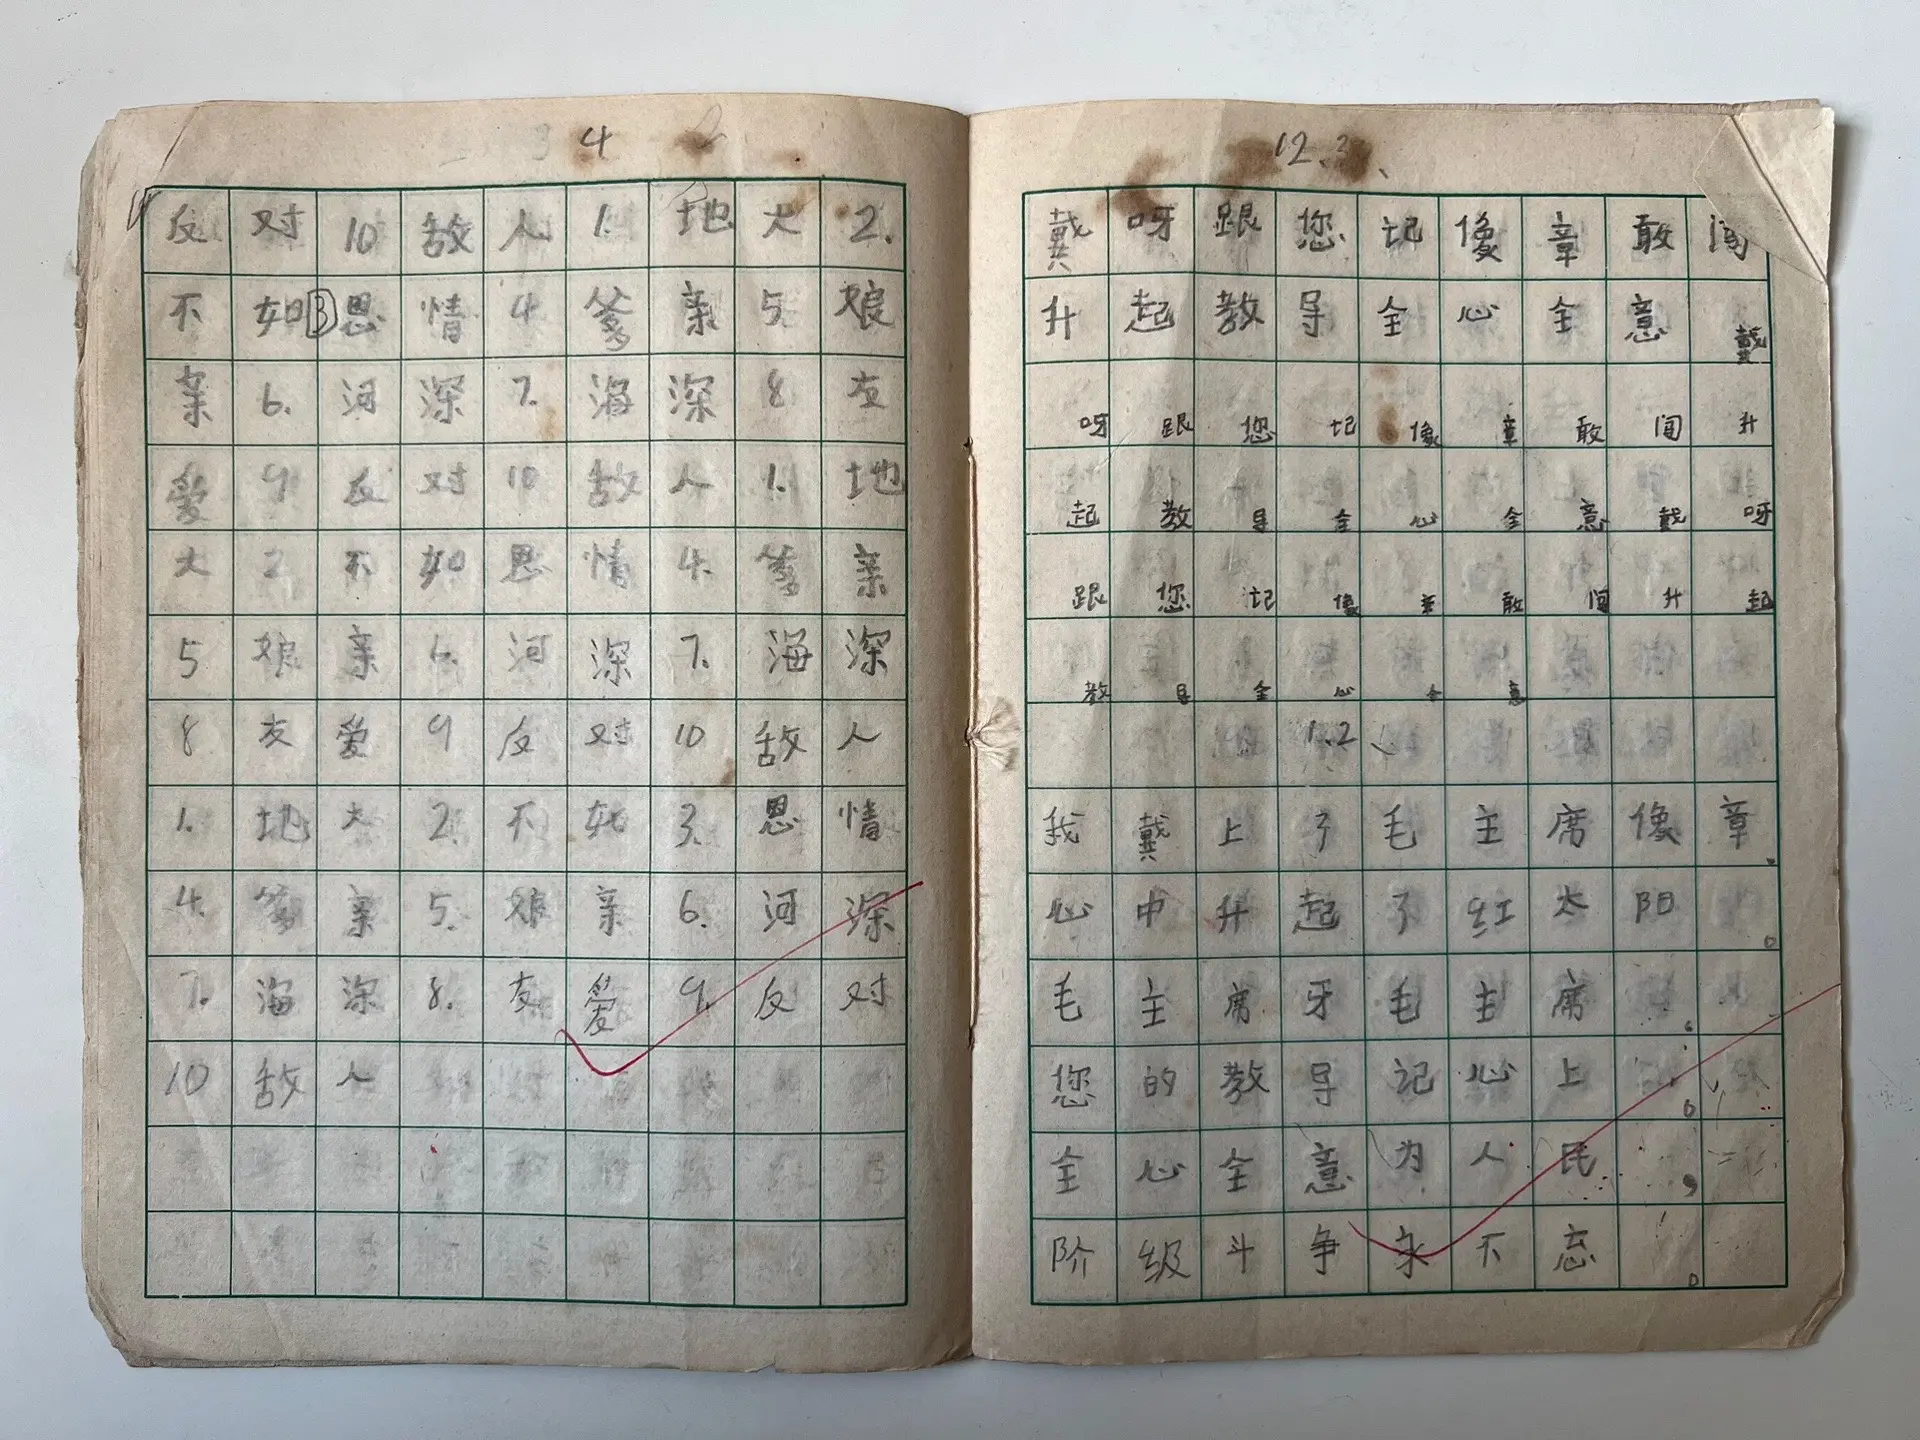 4
反对10敌人1.地大2.
不如3恩情4爹亲5娘
亲6.河深7.海深8友
爱9反对10敌人1.地
大2不如恩情4.爹亲
5娘亲6.河深7.海深
8友爱9反对10敌人
1.地大2.不如3.恩情
4.爹亲5.娘亲6.河深
7.海深8.友爱9.反对
10敌人
12.3、
戴呀跟您记像章敢闯
升起教导全心全意戴
呀跟您记像章敢闯升
起教导全心全意戴呀
跟您记像章敢闯升起
教导全心全意
1.2、
我戴上了毛主席像章。
心中升起了红太阳。
毛主席牙毛主席。
您的教导记心上。
全心全意为人民,
阶级斗争永不忘。